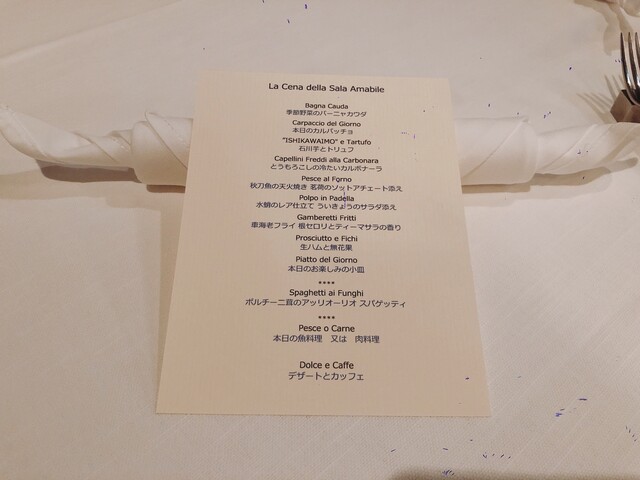 La Cena della Sala Amabile
Bagna Cauda
季節野菜のバーニャカウダ
Carpaccio del Giorno
本日のカルパッチョ
"ISHIKAWAIMO" e Tartufo
石川芋とトリュフ
Capellini Freddi alla Carbonara
とうもろこしの冷たいカルボナーラ
Pesce al Forno
秋刀魚の天火焼き 茗荷のソットアチェート添え
Polpo in Padella
水蛸のレア仕立て ういきょうのサラダ添え
Gamberetti Fritti
車海老フライ 根セロリとティーマサラの香り
Prosciutto e Fichi
生ハムと無花果
Piatto del Giorno
本日のお楽しみの小皿
****
Spaghetti ai Funghi
ポルチーニ茸のアッリオーリオ スパゲッティ
****
Pesce o Carne
本日の魚料理 又は 肉料理
Dolce e Caffe
デザートとカッフェ